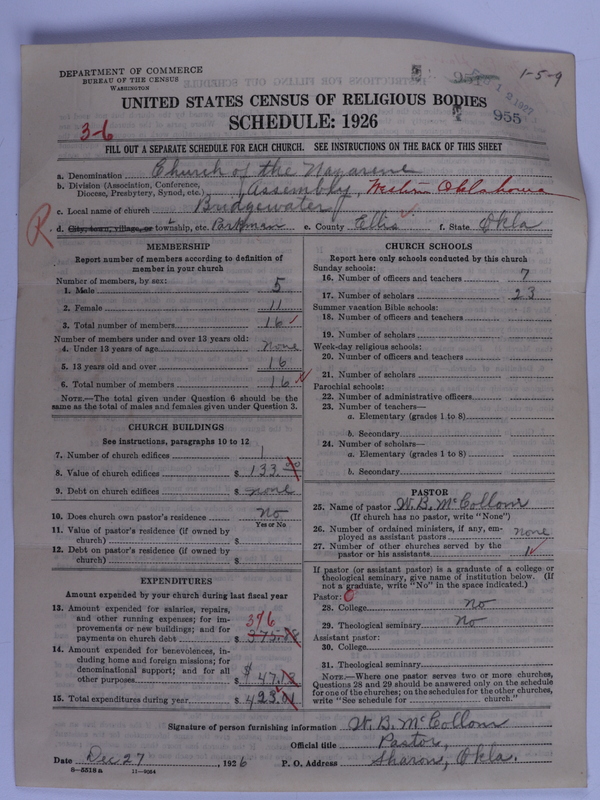 DEPARTMENT OF COMMERCE
BUREAU OF THE CENSUS
WASHINGTON
1-5-9
955
UNITED STATES CENSUS OF RELIGIOUS BODIES
SCHEDULE: 1926
3-6
FILL OUT A SEPARATE SCHEDULE FOR EACH CHURCH. SEE INSTRUCTIONS ON THE BACK OF THIS SHEET
a. Denomination Church of the Nazarene
b. Division (Association, Conference, Diocese, Presbytery, Synod, etc.) (Assembly, Western Oklahoma
c. Local name of church Bridgewater
R d. City, town, village, or township, etc. e. County Ellis f. State Okla
MEMBERSHIP
Report number of members according to definition of
member in your church
Number of members, by sex:
1. Male 5
2. Female 11
3. Total number of members 16
Number of members under and over 13 years old:
4. Under 13 years of age none
5. 13 years old and over 16
6. Total number of members 16
NOTE.—The total given under Question 6 should be the
same as the total of males and females given under Question 3.
CHURCH BUILDINGS
See instructions, paragraphs 10 to 12
7. Number of church edifices 1
8. Value of church edifices $ 133.00
9. Debt on church edifices $ none
10. Does church own pastor's residence No
Yes or No
11. Value of pastor's residence (if owned by
church) $
12. Debt on pastor's residence (if owned by
church) $
EXPENDITURES
Amount expended by your church during last fiscal year
13. Amount expended for salaries, repairs,
and other running expenses; for im-
provements or new buildings; and for
payments on church debt $ 376
14. Amount expended for benevolences, in-
cluding home and foreign missions; for
denominational support; and for all
other purposes $ 47.13
15. Total expenditures during year $ 423.01
CHURCH SCHOOLS
Report here only schools conducted by this church
Sunday schools:
16. Number of officers and teachers 7
17. Number of scholars 23
Summer vacation Bible schools:
18. Number of officers and teachers
19. Number of scholars
Week-day religious schools:
20. Number of officers and teachers
21. Number of scholars
Parochial schools:
22. Number of administrative officers
23. Number of teachers—
a. Elementary (grades 1 to 8)
b. Secondary
24. Number of scholars—
a. Elementary (grades 1 to 8)
b. Secondary
PASTOR
25. Name of pastor W. B. McCollom
(If church has no pastor, write "None")
26. Number of ordained ministers, if any, em-
ployed as assistant pastors none
27. Number of other churches served by the
pastor or his assistants
If pastor (or assistant pastor) is a graduate of a college or
theological seminary, give name of institution below. (If
not a graduate, write "No" in the space indicated.)
Pastor:
28. College No
29. Theological seminary No
Assistant pastor:
30. College
31. Theological seminary
NOTE.—Where one pastor serves two or more churches,
Questions 28 and 29 should be answered only on the schedule
for one of the churches; on the schedules for the other churches,
write "See schedule for church."
Signature of person furnishing information W. B. McCollom
Official title Pastor,
Date Dec 27, 1926 P. O. Address Sharon, Okla.
8-5518a 11-9054